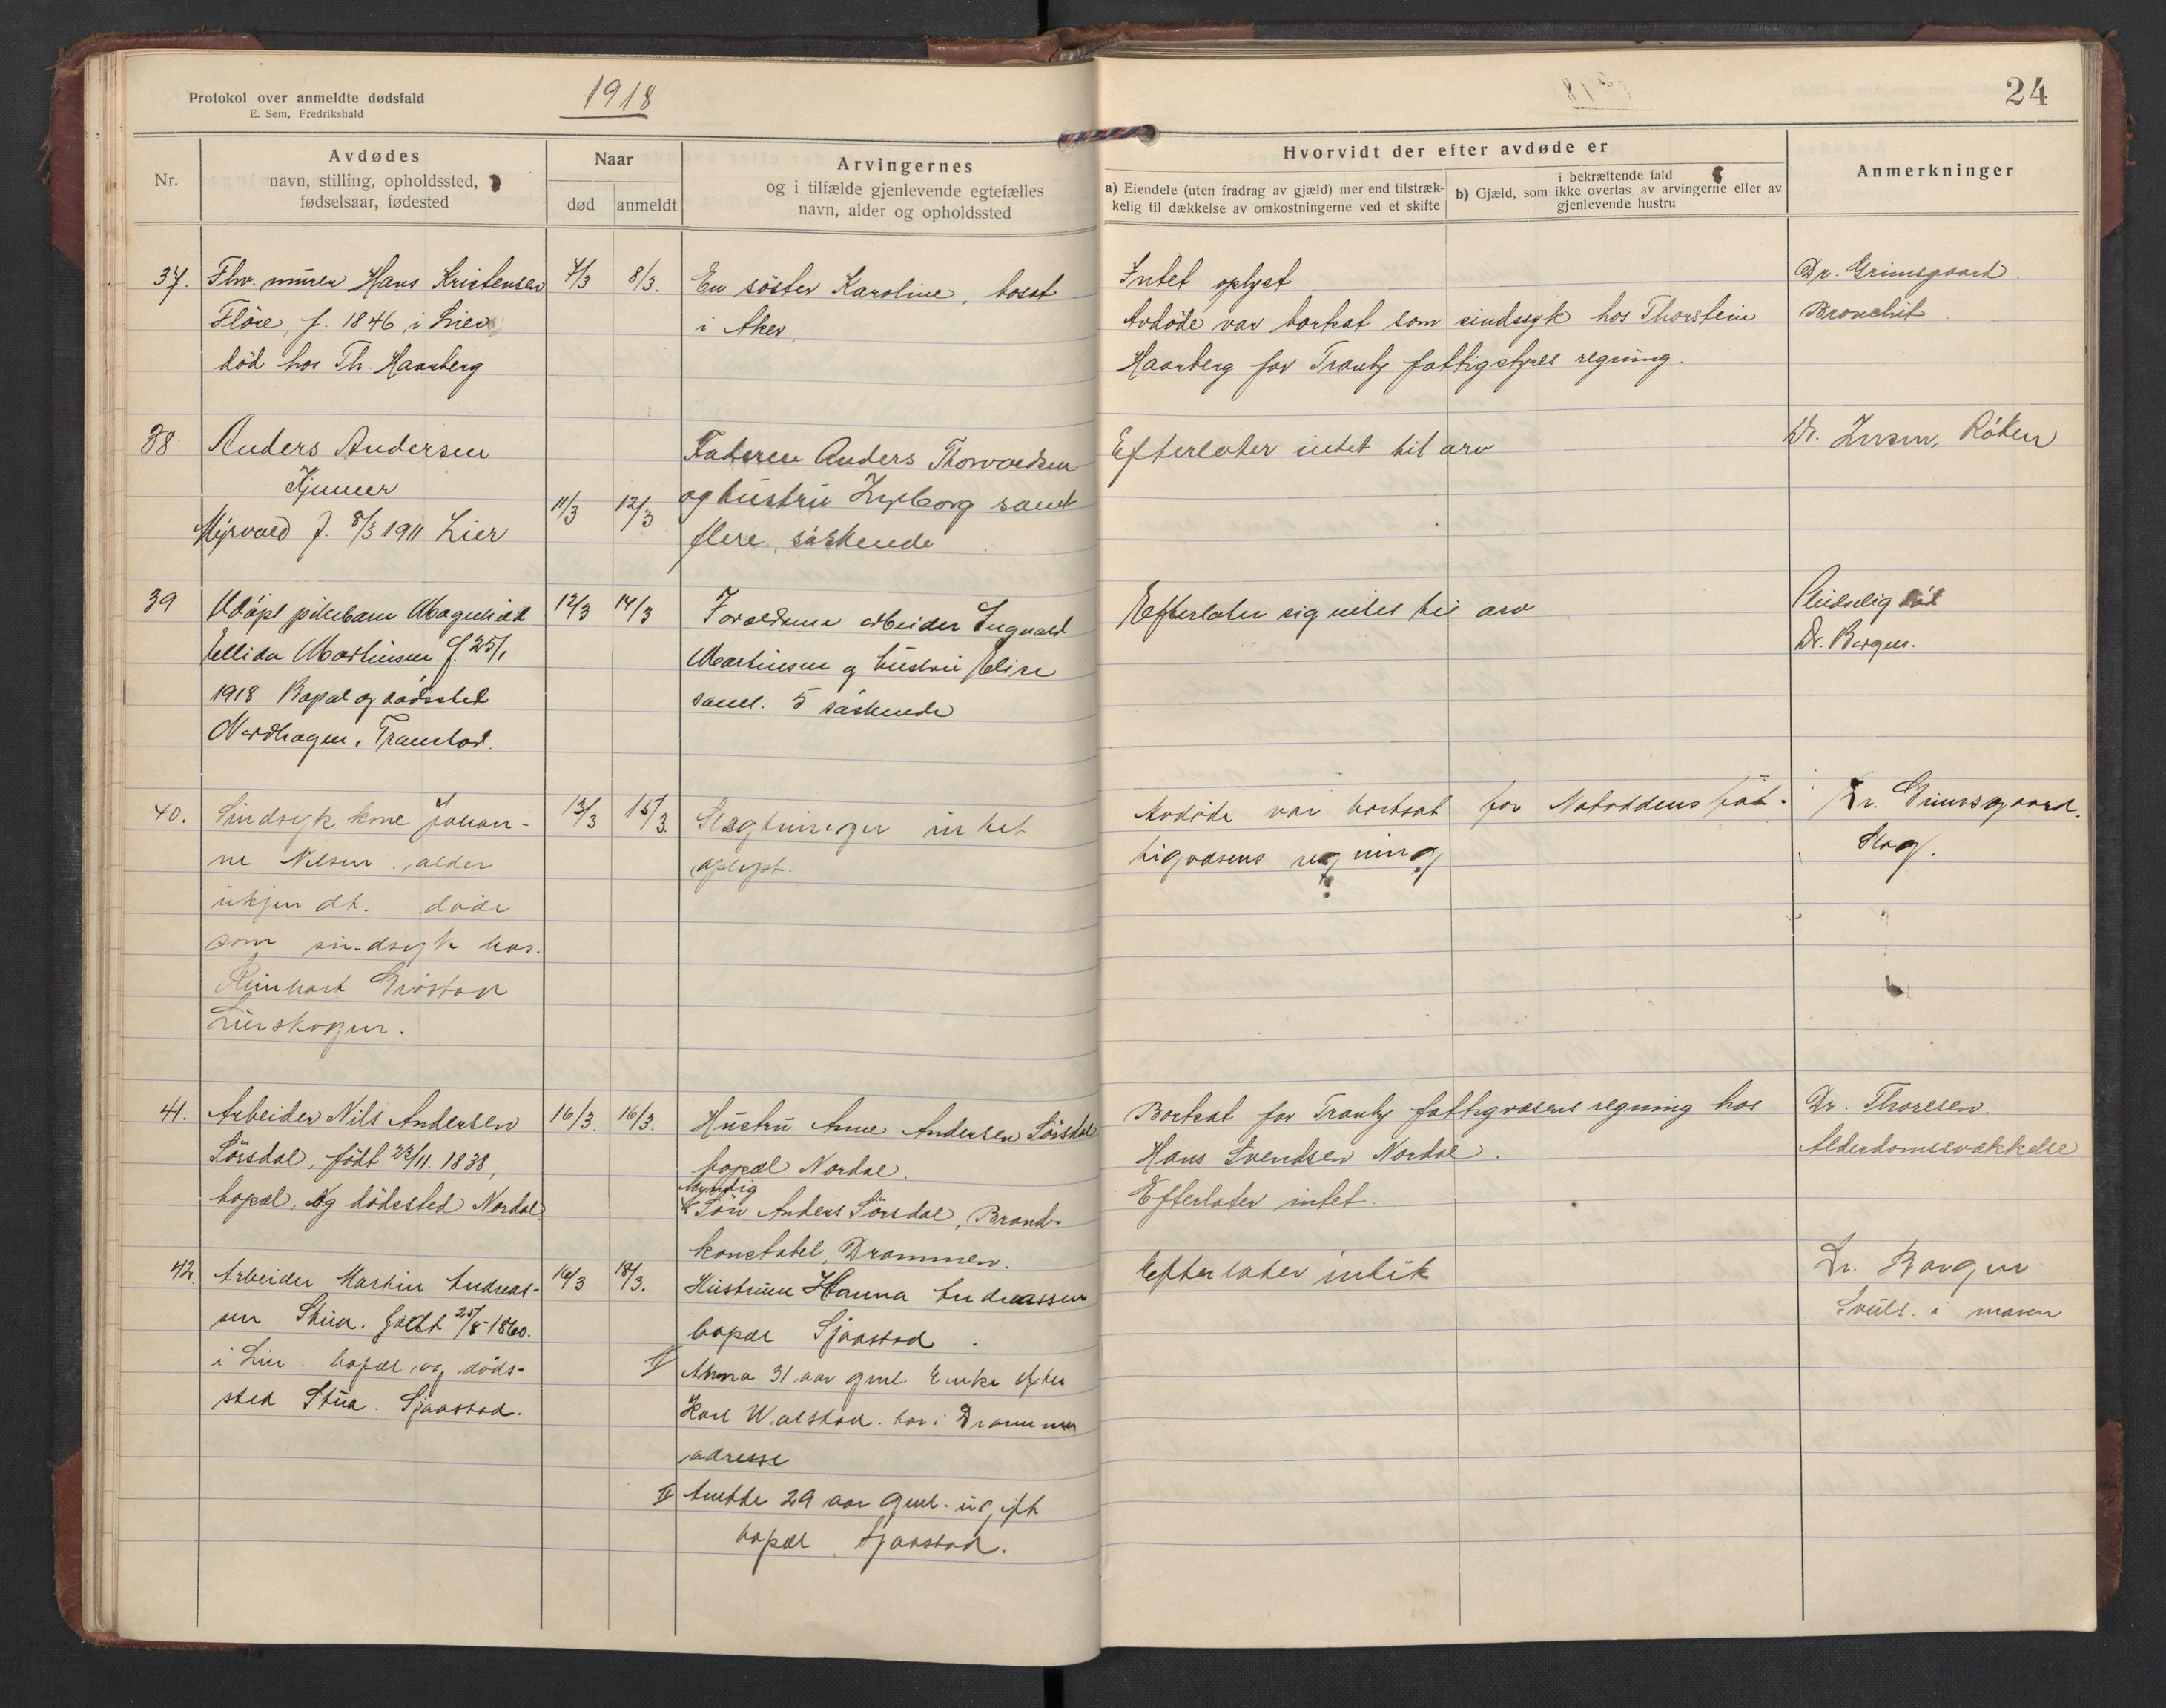 Protokol over anmeldte dødsfald
E. Sem, Fredrikshald
1918
24
Nr.
Avdødes
navn, stilling, opholdssted,
fødselsaar, fødested
Naar
død
anmeldt
Arvingernes
og i tilfælde gjenlevende egtefælles
navn, alder og opholdssted
Hvorvidt der efter avdøde er
a) Eiendele (uten fradrag av gjæld) mer end tilstræk-
kelig til dækkelse av omkostningerne ved et skifte
i bekræftende fald
b) Gjæld, som ikke overtas av arvingerne eller av
gjenlevende hustru
Anmerkninger
37. Fhv. murer Hans Kristensen 7/3 8/3. En söster Karoline, bosat Intet oplyst. Dr. Grimsgaard.
Flöie, f. 1846 i Lier i Aker, Avdöde var bortsat som sindssyk hos Thorstein Bronchit.
död hos Th. Haarberg Haarberg for Tranby fattigstyres regning.
38 Anders Andersen Anders Thorvaldsen Efterlater intet til arv Dr. Røken
Kjenner 11/3 12/3 og hustru Ingeborg samt
Myrvold f. 8/5 1911 Lier flere søskende
39 Udöpt pikebarn Magnhild 12/3 14/3 Forældrene arbeider Ingvald Efterlater sig intet til arv Pludselig död
Ellida Martinsen f. 25/1 Martinsen og hustru Elise Dr. Borgen.
1918 Bopæl og dødssted saml. 5 søskende
Nordhagen, Tranebod.
40. Sindsyk kone Johan- 13/3 15/3. Slegtninger intet Avdøde var bortsat for Notoddens fat- Dr. Grimsgaard.
ne Nilsen. alder oplyst. tigvæsens regning Slag.
ukjendt. døde
som sindsyk hos.
Reinhart
Lierskogen.
41. Arbeider Nils Andersen 16/3. 16/3. Hustru Anne Andersen Sörsdal Bortsat for Tranby fattigvæsens regning hos Dr. Thoresen.
Sörsdal, född 23/11. 1838, bopæl Nordal. Hans Svendsen Nordal. Alderdomssvækkelse
bopæl, og dödssted Nordal. Myndig
Sön Anders Sörsdal, Brand- Efterlater intet.
konstabel, Drammen.
42. Arbeider Martin Andreas- 16/3 18/3. Hustruen Hanna Andreassen Efterlater intet Dr. Borgen
sen Stua. født 25/8-1860. bopæl Sjaastad. Svulst i maven
i Lier. bopæl og døds- I Anna 31 aar gml. Enke efter
sted Stua. Sjaastad. Karl Wolstad. bor i Drammen
adresse
II Anette 29 aar gml. ugift
bopæl Sjaastad.